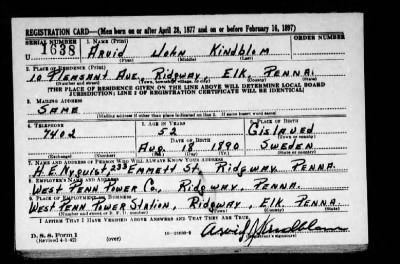 REGISTRATION CARD—(Men born on or after April 28, 1877 and on or before February 16, 1897)
SERIAL NUMBER 1. NAME (Print) ORDER NUMBER
U 1638 Arvid John Kindblom
(First) (Middle) (Last)
2. PLACE OF RESIDENCE (Print)
10 Pleasant Ave., Ridgway, Elk, Penna.
(Number and street) (Town, township, village, or city) (County) (State)
[THE PLACE OF RESIDENCE GIVEN ON THE LINE ABOVE WILL DETERMINE LOCAL BOARD
JURISDICTION; LINE 2 OF REGISTRATION CERTIFICATE WILL BE IDENTICAL]
3. MAILING ADDRESS
Same
[Mailing address if other than place indicated on line 2. If same insert word same]
4. TELEPHONE 5. AGE IN YEARS 6. PLACE OF BIRTH
7402 52 Gislaved
DATE OF BIRTH (Town or county)
Aug. 18 1890 Sweden
(Exchange) (Number) (Mo.) (Day) (Yr.) (State or country)
7. NAME AND ADDRESS OF PERSON WHO WILL ALWAYS KNOW YOUR ADDRESS
H.E. Nyquist, 233 Emmett St., Ridgway, Penna.
8. EMPLOYER'S NAME AND ADDRESS
West Penn Power Co., Ridgway, Penna.
9. PLACE OF EMPLOYMENT OR BUSINESS
West Penn Power Station, Ridgway, Elk, Penna.
(Number and street or R. F. D. number) (Town) (County) (State)
I AFFIRM THAT I HAVE VERIFIED ABOVE ANSWERS AND THAT THEY ARE TRUE.
D. S. S. Form 1
(Revised 4-1-42) (over) Arvid J Kindblom
(Registrant's signature)